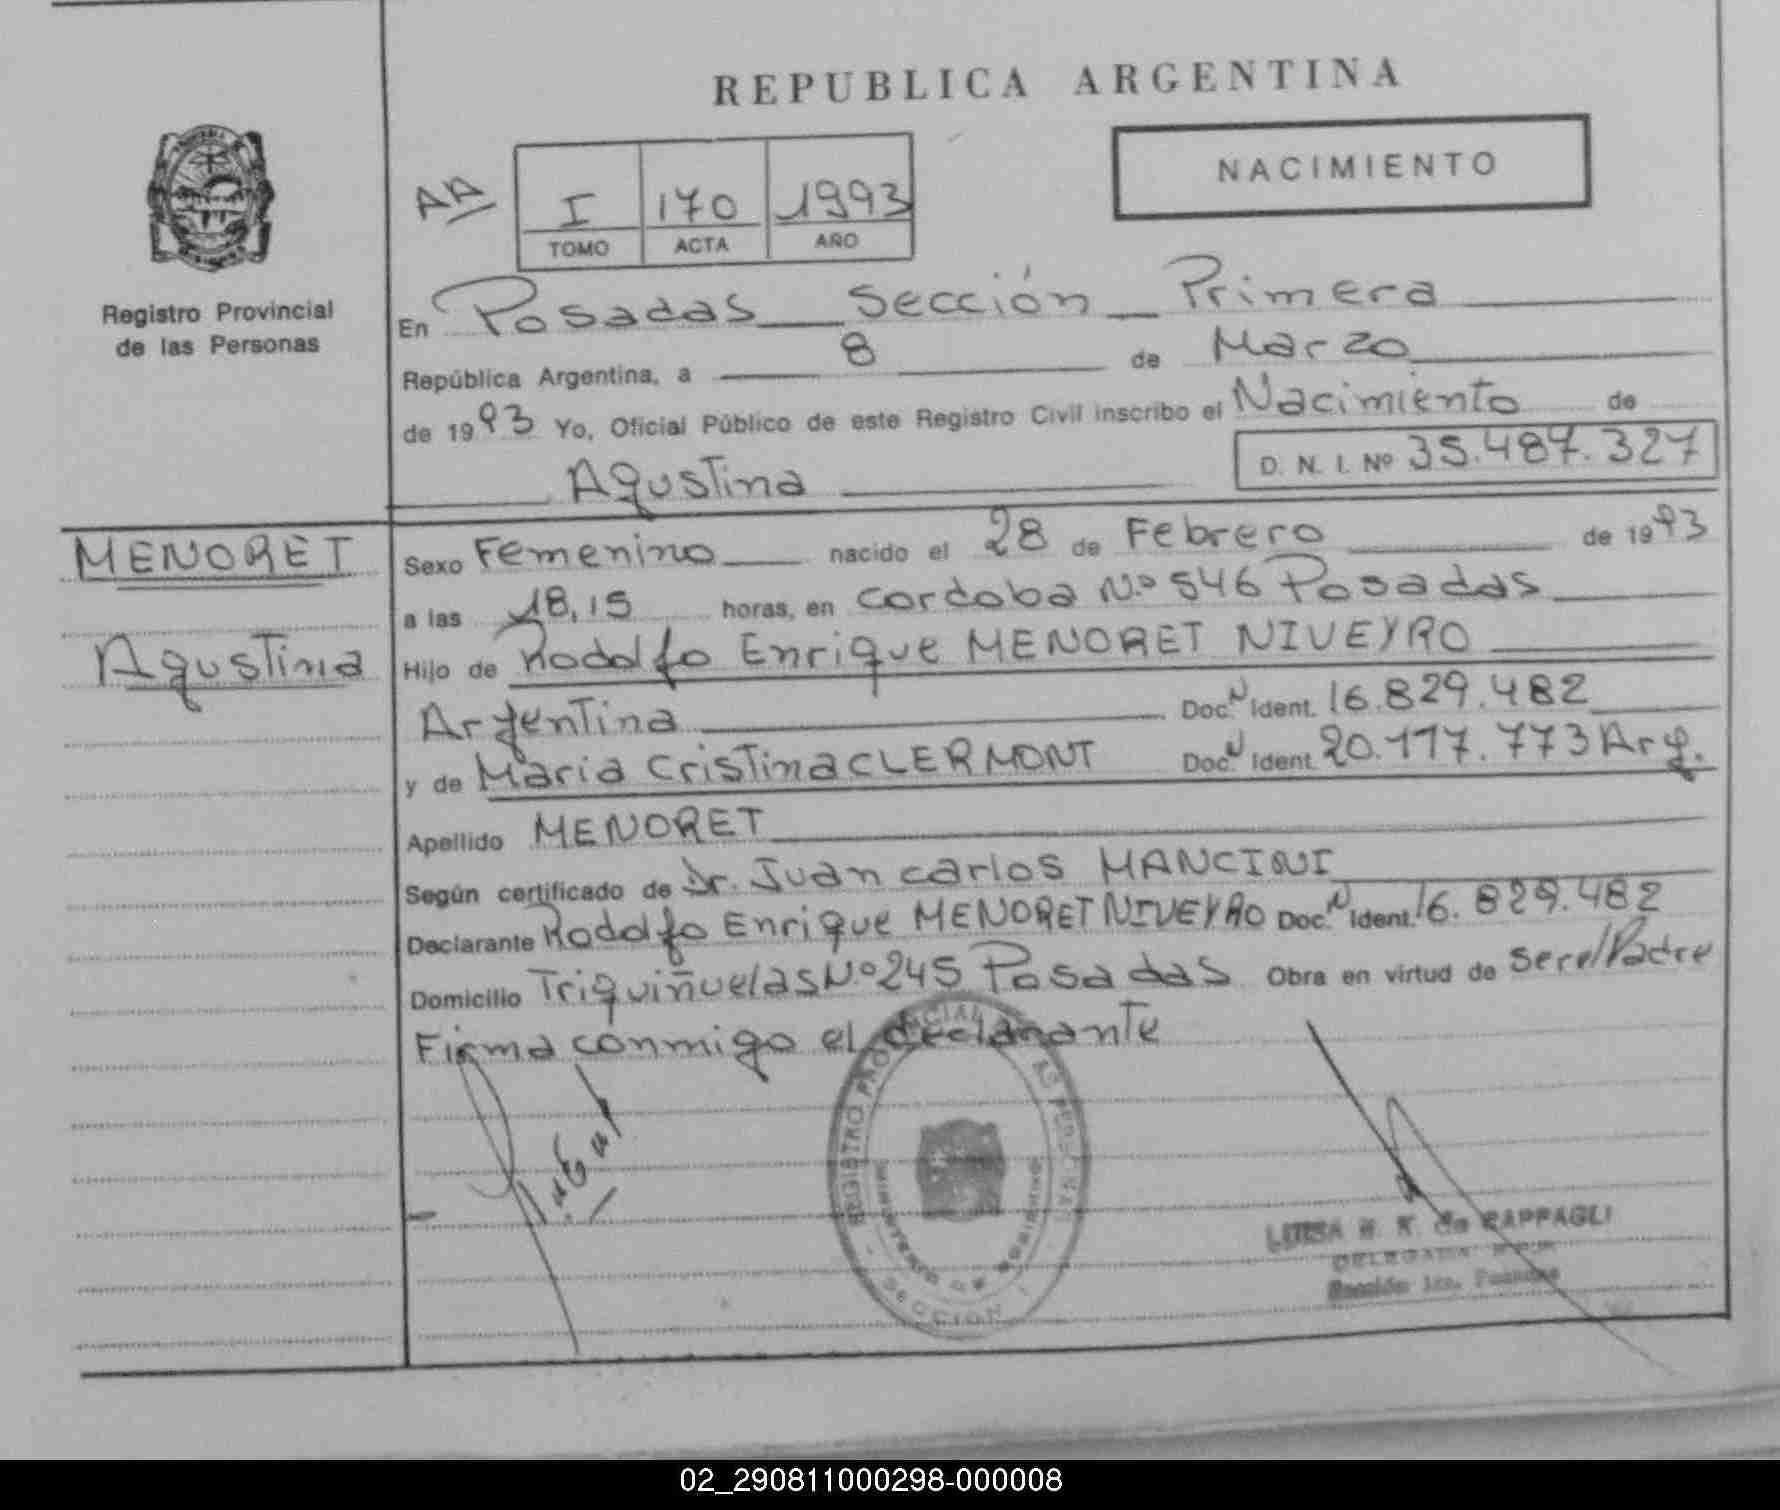 REPUBLICA ARGENTINA
NACIMIENTO
AA
I 170 1993
TOMO ACTA AÑO
Registro Provincial
de las Personas
En Posadas Sección Primera
República Argentina, a 8 de Marzo
de 1993 Yo, Oficial Público de este Registro Civil inscribo el Nacimiento de
Agustina D. N. I. Nº 35.487.327
MENORET
Agustina
Sexo Femenino nacido el 28 de Febrero de 1993
a las 18,15 horas, en Cordoba N.º 546 Posadas
Hijo de Rodolfo Enrique MENORET NIVEYRO
Argentina Doc. N Ident. 16.829.482
y de Maria Cristina CLERMONT Doc. N Ident. 20.117.773 Arg.
Apellido MENORET
Según certificado de Dr. Juan carlos MANCINI
Declarante Rodolfo Enrique MENORET NIVEYRO Doc. N Ident. 16.829.482
Domicilio Triquiñuelas N.º 245 Posadas Obra en virtud de ser el Padre
Firma conmigo el declarante
REGISTRO PROVINCIAL DE LAS PERSONAS
MINISTERIO DE GOBIERNO
SECCION
LUISA H. K. de RAPPAGLI
DELEGADA
Sección 1ra. Posadas
02_290811000298-000008